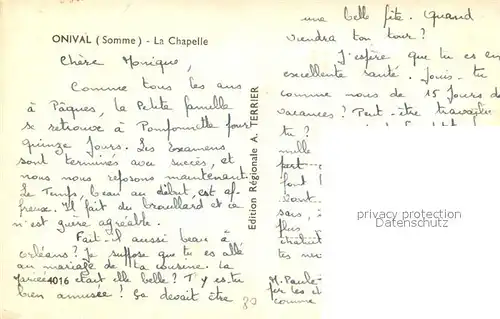 ONIVAL (Somme) - La Chapelle
Chère Monique,
Comme tous les ans
à Pâques, la Petite famille
se retrouve à Pomponnette pour
quinze jours. Les Examens
sont terminés avec succès, et
nous nous reposons maintenant.
Le Temps, beau au début, est af-
freux. Il fait du brouillard et ce
n'est guère agréable.
Fait-il aussi beau à
Orléans? Je suppose que tu es allé
au mariage de ta cousine. La
mariée était elle belle? T'y es-tu
bien amusée! Ça devait être
4016
Edition Régionale A. TERRIER
une belle fête. Quand
viendra ton tour?
J'espère que tu es en
excellente santé. Jouis-tu
comme nous de 15 Jours de
vacances? Peut-être travailles
tu?
mille
font
sans,
plus
tes
M. Paule
comme
privacy protection
Datenschutz